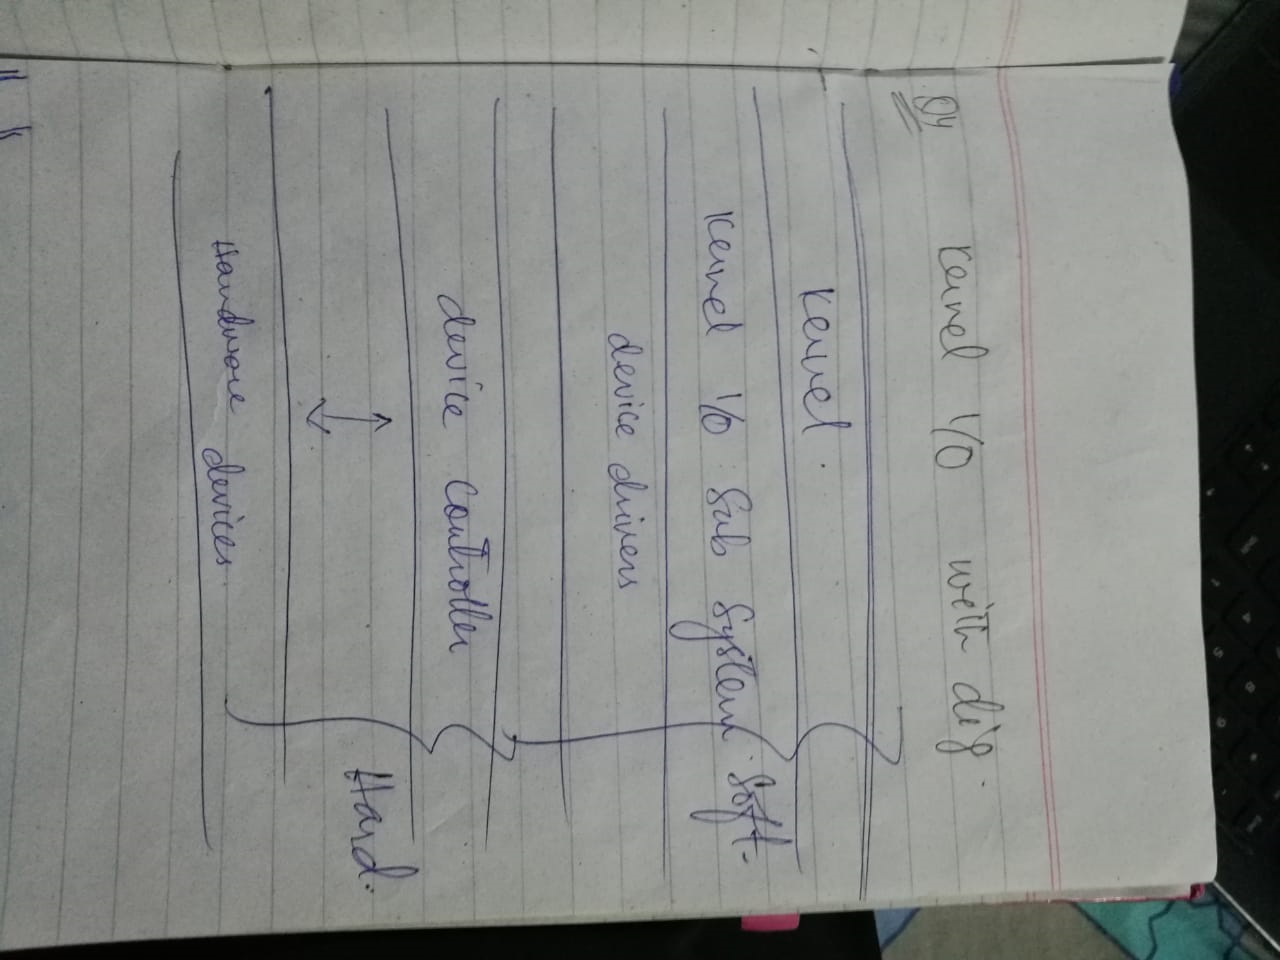 Q4 Kernel I/O with dig.
Kernel.
Kernel I/O Sub System.
Soft.
device drivers
device controller
Hard.
Hardware devices.